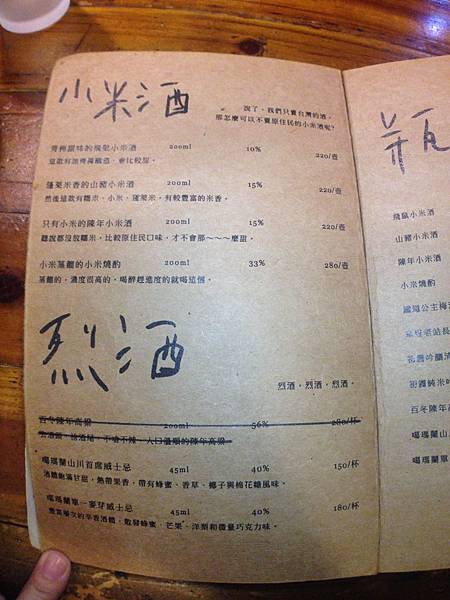 小米酒
說了，我們只賣台灣的酒，
那怎麼可以不賣原住民的小米酒呢?
青梅甜味的飛鼠小米酒 200ml 10% 220/壺
蓬萊米香的山豬小米酒 200ml 15% 220/壺
然後這款有糯米、小米、蓬萊米，有較豐富的米香。
只有小米的陳年小米酒 200ml 15% 220/壺
聽說都沒放糯米，比較原住民口味，才不會那～～～麼甜。
小米蒸餾的小米燒酌 200ml 33% 280/壺
蒸餾的，濃度很高的，喝醉趕進度的就喝這個。
烈酒
烈酒，烈酒，烈酒。
百冬陳年高粱 200ml 56% 280/杯
噶瑪蘭山川首席威士忌 45ml 40% 150/杯
酒體飽滿甘甜，熱帶果香，帶有蜂蜜、香草、椰子與棉花糖風味。
噶瑪蘭單一麥芽威士忌 45ml 40% 180/杯
豐富層次的辛香酒體，散發蜂蜜、芒果、洋梨和微量巧克力味。
瓶
飛鼠小米酒
山豬小米酒
陳年小米酒
小米燒酌
百冬陳年
噶瑪蘭山
噶瑪蘭單